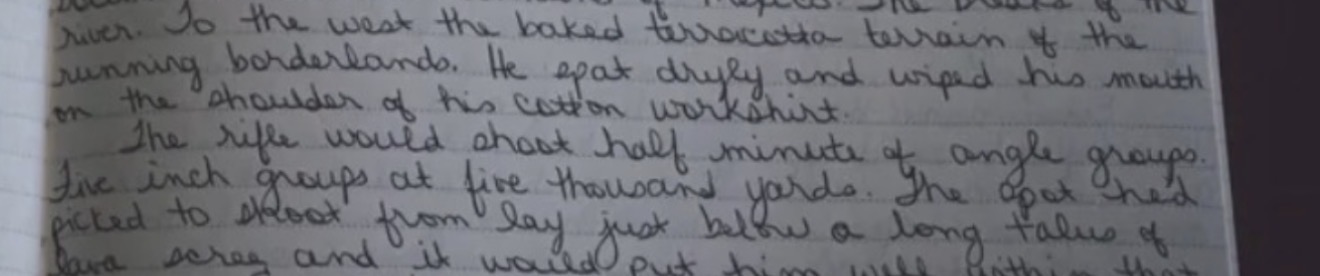 The breaks of the
river. To the west the baked terracotta terrain of the
running borderlands. He spat dryly and wiped his mouth
on the shoulder of his cotton workshirt.
The rifle would shoot half minute of angle groups.
Five inch groups at five thousand yards. The spot hed
picked to shoot from lay just below a long talus of
lava scree and it would put him well within that